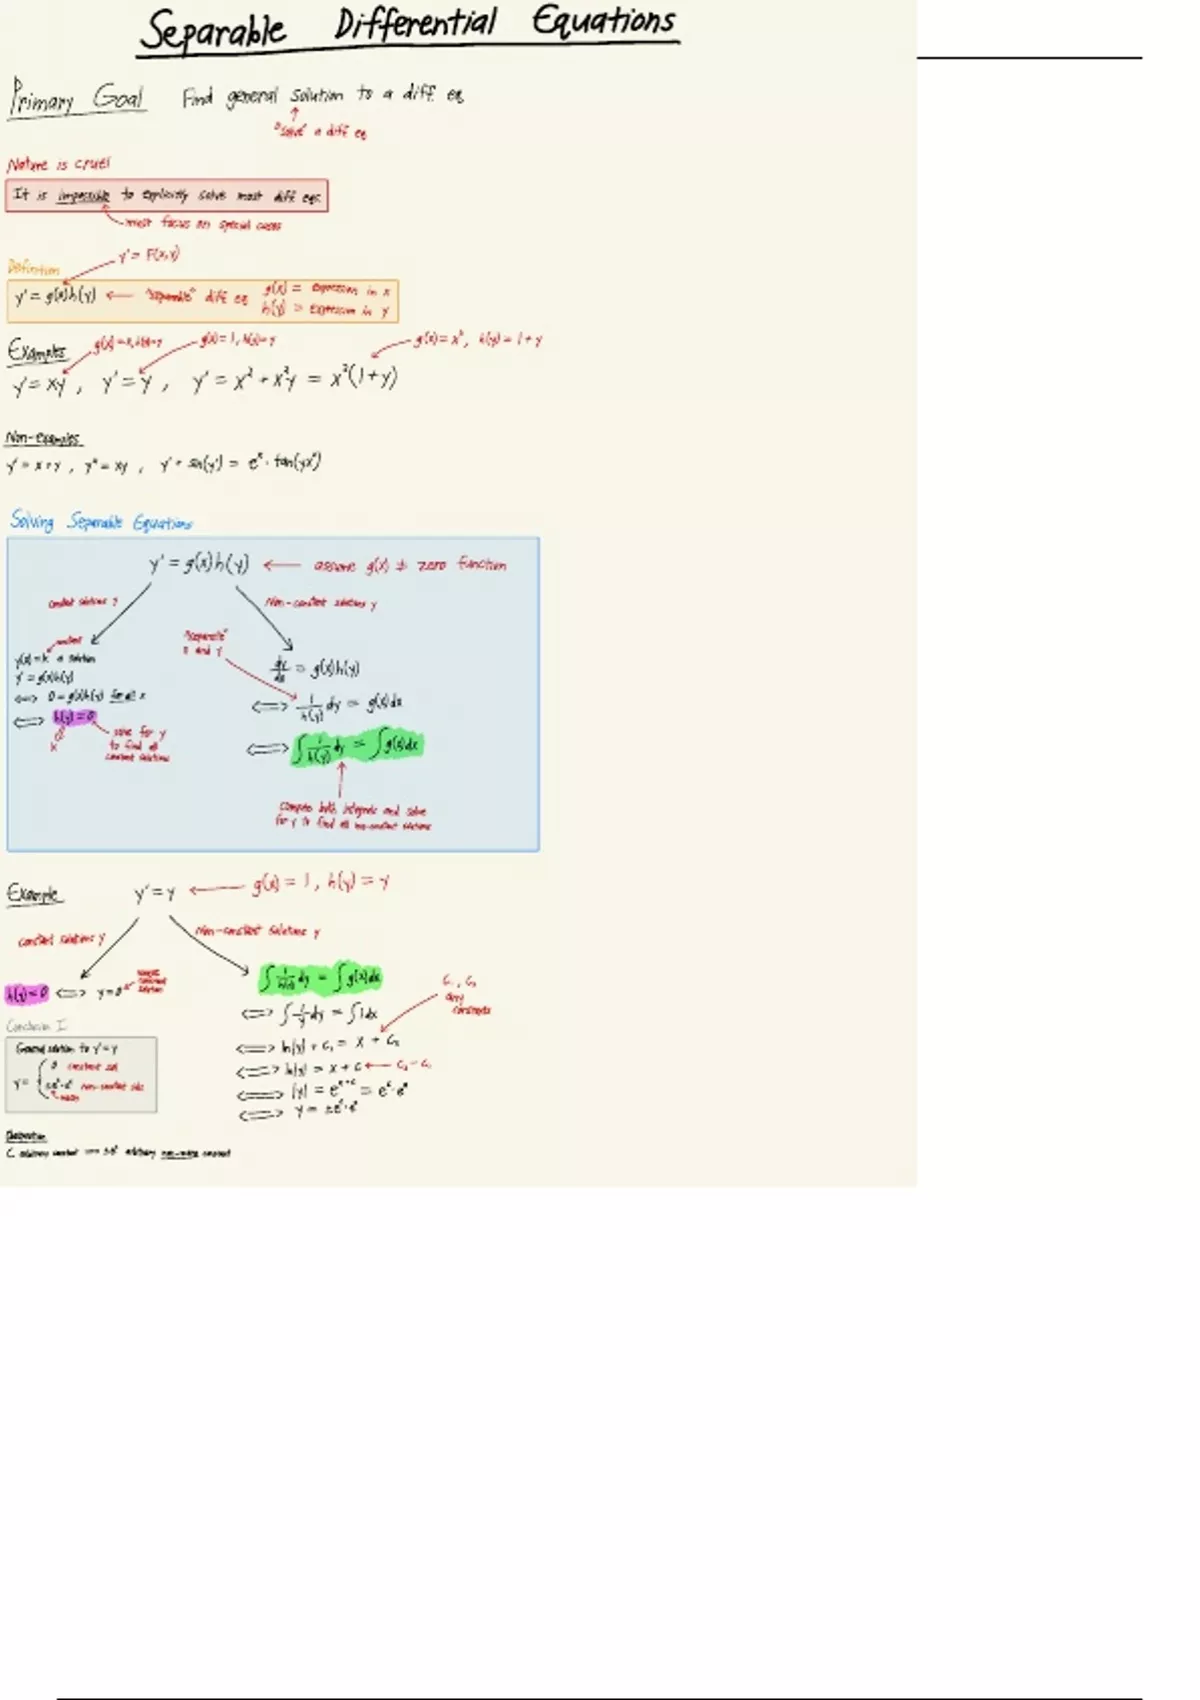 Separable Differential Equations
Primary Goal Find general solution to a diff eq
"solve" a diff eq
Nature is cruel
It is impossible to explicitly solve most diff eqs.
must focus on special cases
y' = F(x,y)
Definition
y' = g(x)h(y) ← "separable" diff eq g(x) = expression in x
h(y) = expression in y
Examples g(x)=x, h(y)=y g(x)=1, h(y)=y g(x)=x², h(y)=1+y
y'=xy, y'=y, y' = x² + x²y = x²(1+y)
Non-examples
y' = x+y, y" = xy, y' + sin(y') =
Solving Separable Equations
y' = g(x)h(y) ← assume g(x) ≠ zero function
constant solutions y Non-constant solutions y
constant "separate"
x and y
y(x)=k a solution
y' = g(x)h(y)
⟺ 0 = g(x)h(y) for all x
⟺ h(y)=0
k
solve for y
to find all
constant solutions
dy/dx = g(x)h(y)
⟺ 1/h(y) dy = g(x)dx
⟺ ∫ 1/h(y) dy = ∫g(x)dx
compute both integrals and solve
for y to find all non-constant solutions
Example y'=y ← g(x)=1, h(y)=y
constant solutions y Non-constant solutions y
h(y)=0 ⟺ y=0
constant
solution
∫ 1/h(y) dy = ∫g(x)dx
⟺ ∫ 1/y dy = ∫1dx
C₁, C₂
any
constants
⟺ ln|y| + C₁ = x + C₂
⟺ ln|y| = x + C ← C₂ - C₁
⟺ |y| = e^(x+c) = e^c·e^x
⟺ y = ±e^c·e^x
Conclusion I
General solution to y'=y
y = { 0 constant sol
±e^c·e^x non-constant sols
C arbitrary constant ⟺ ±e^c arbitrary non-zero constant